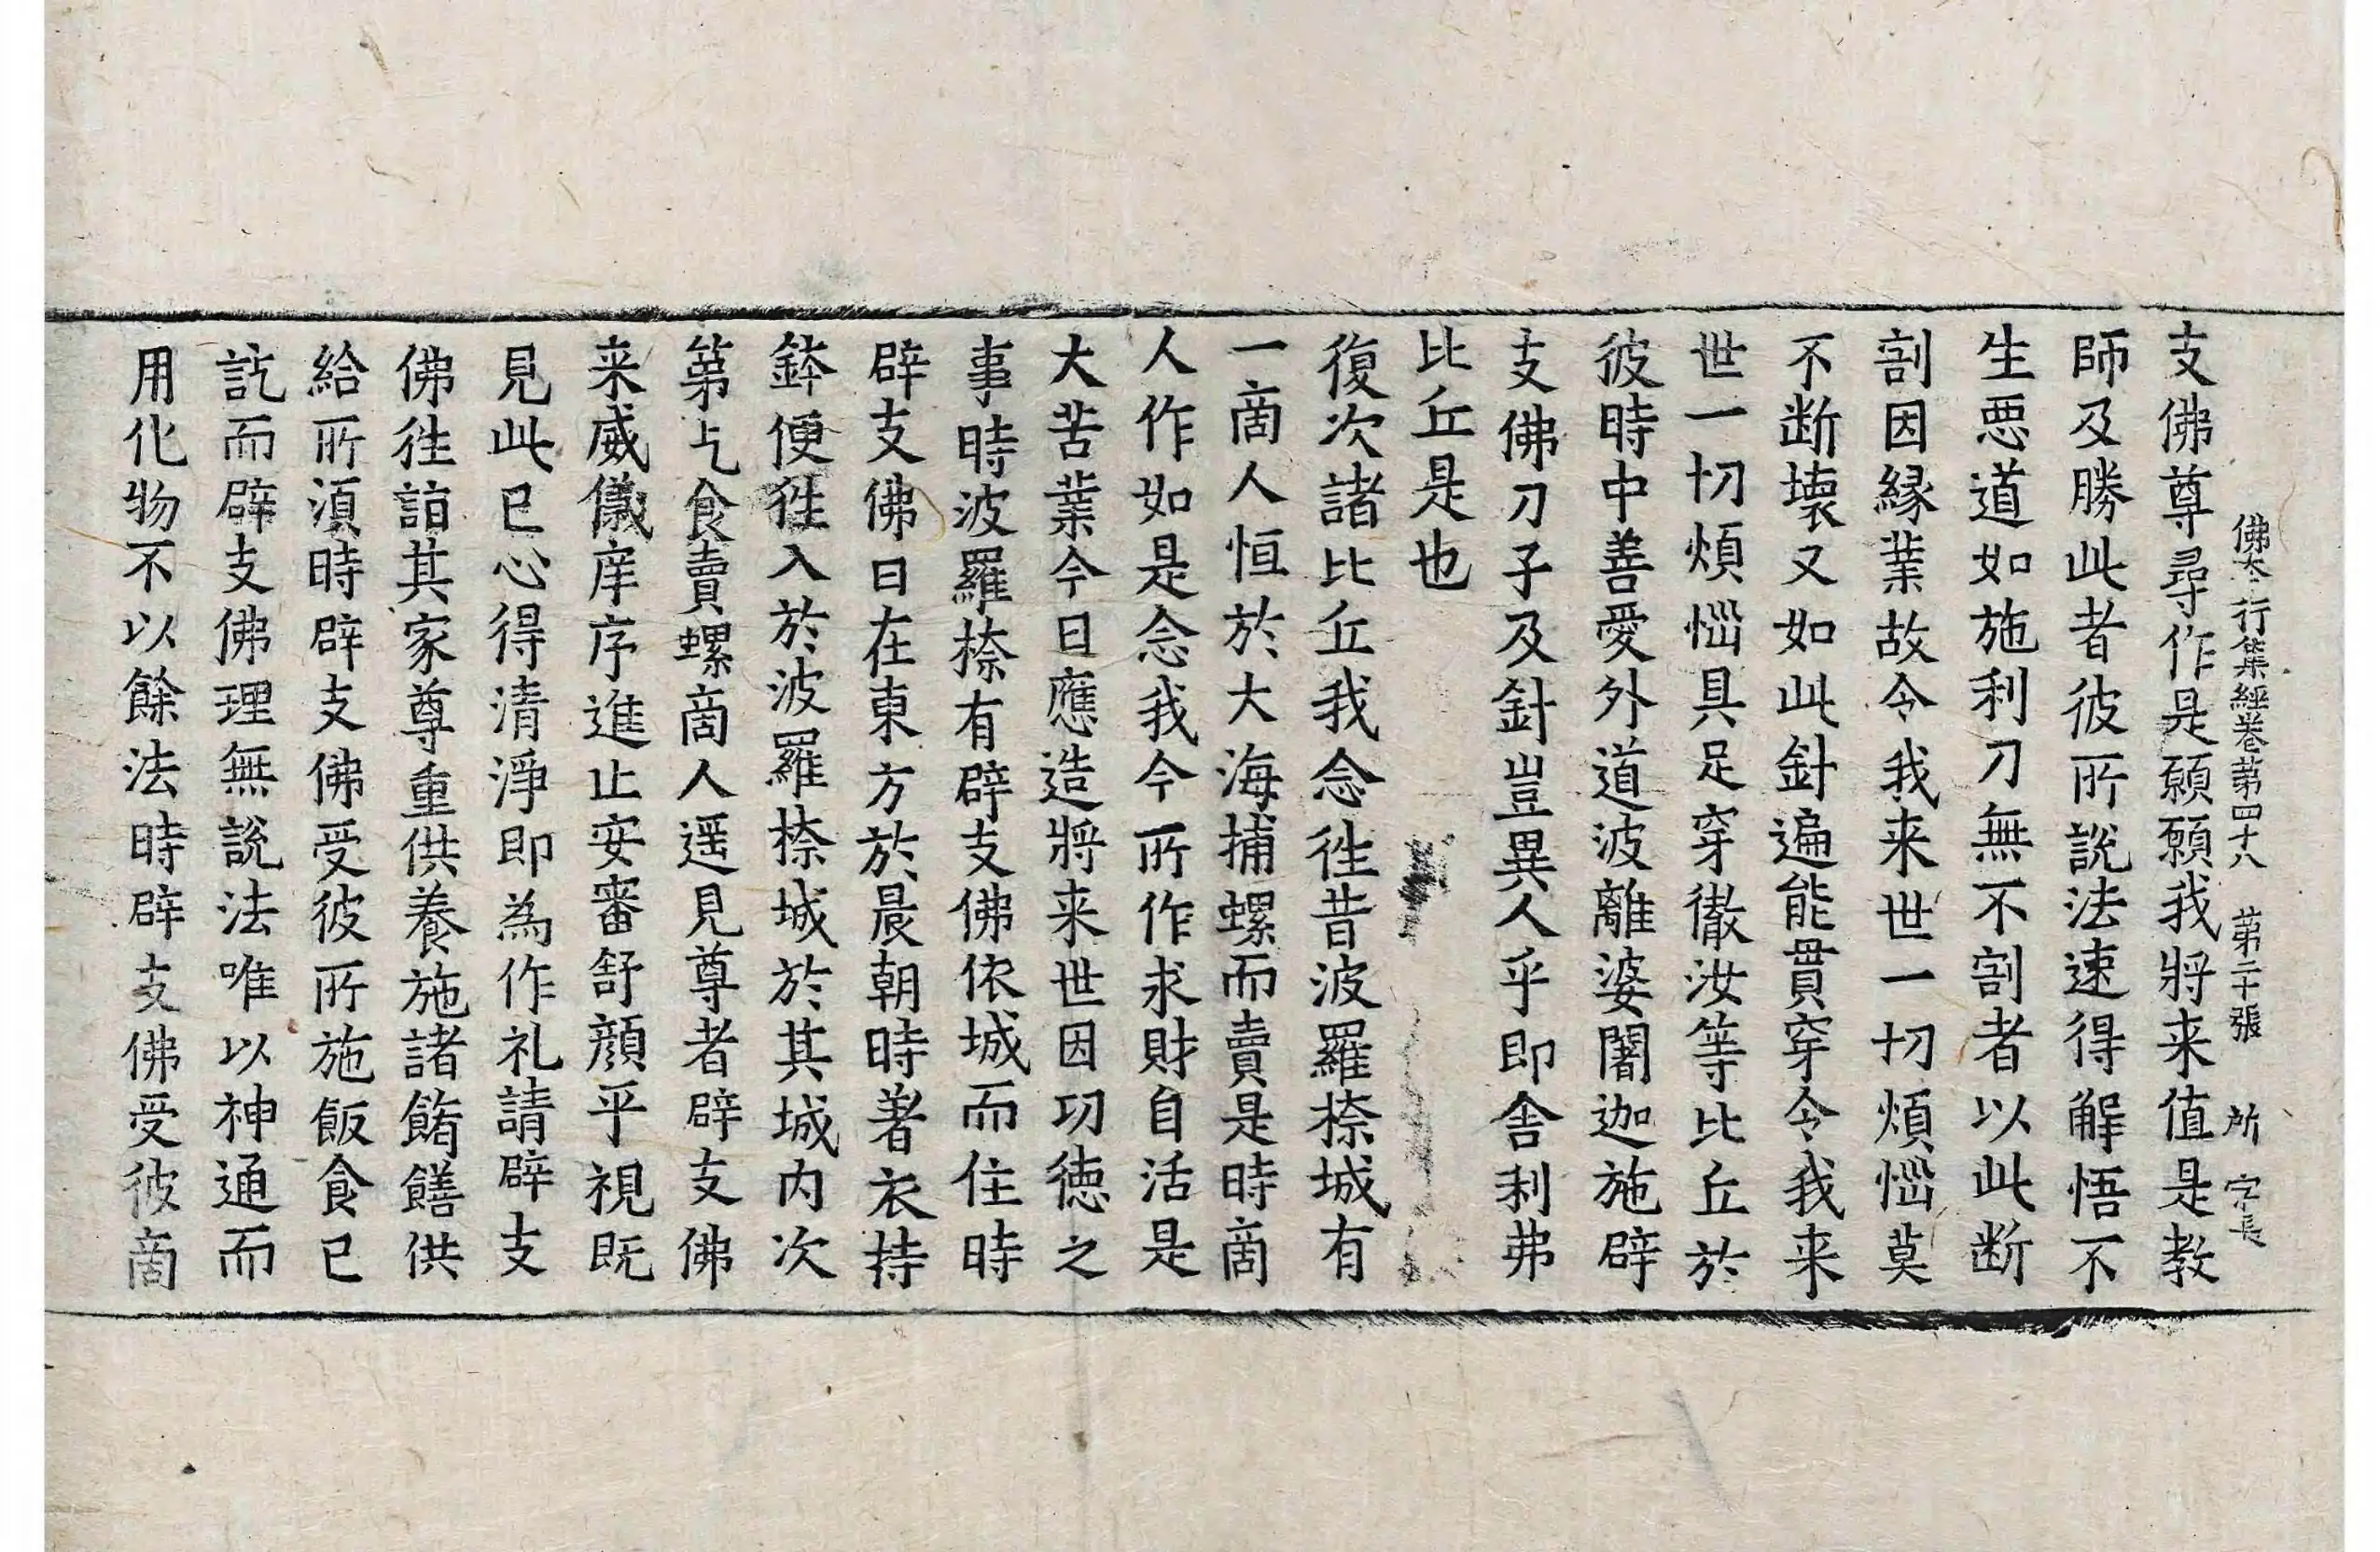 佛本行集經卷第四十八 第二十張 所 字長
支佛尊尋作是願願我將来值是教
師及勝此者彼所說法速得解悟不
生惡道如施利刀無不割者以此断
割因縁業故令我来世一切煩惱莫
不断壞又如此針遍能貫穿令我来
世一切煩惱具足穿徹汝等比丘於
彼時中善愛外道波離婆闍迦施辟
支佛刀子及針豈異人乎即舍利弗
比丘是也
復次諸比丘我念往昔波羅㮈城有
一啇人恒於大海捕螺而賣是時啇
人作如是念我今所作求財自活是
大苦業今日應造將来世因功德之
事時波羅㮈有辟支佛依城而住時
辟支佛日在東方於晨朝時著衣持
鉢便往入於波羅㮈城於其城内次
第乞食賣螺啇人遥見尊者辟支佛
来威儀庠序進止安審舒顔平視既
見此已心得清淨即為作礼請辟支
佛往詣其家尊重供養施諸餚饍供
給所須時辟支佛受彼所施飯食已
訖而辟支佛理無說法唯以神通而
用化物不以餘法時辟支佛受彼啇